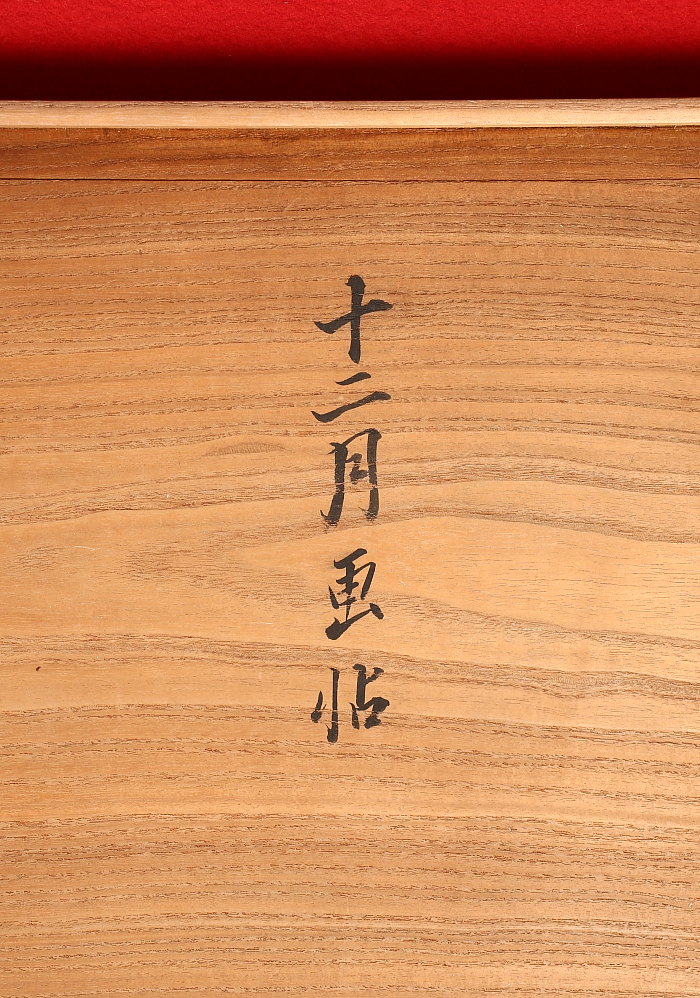 十二月画帖